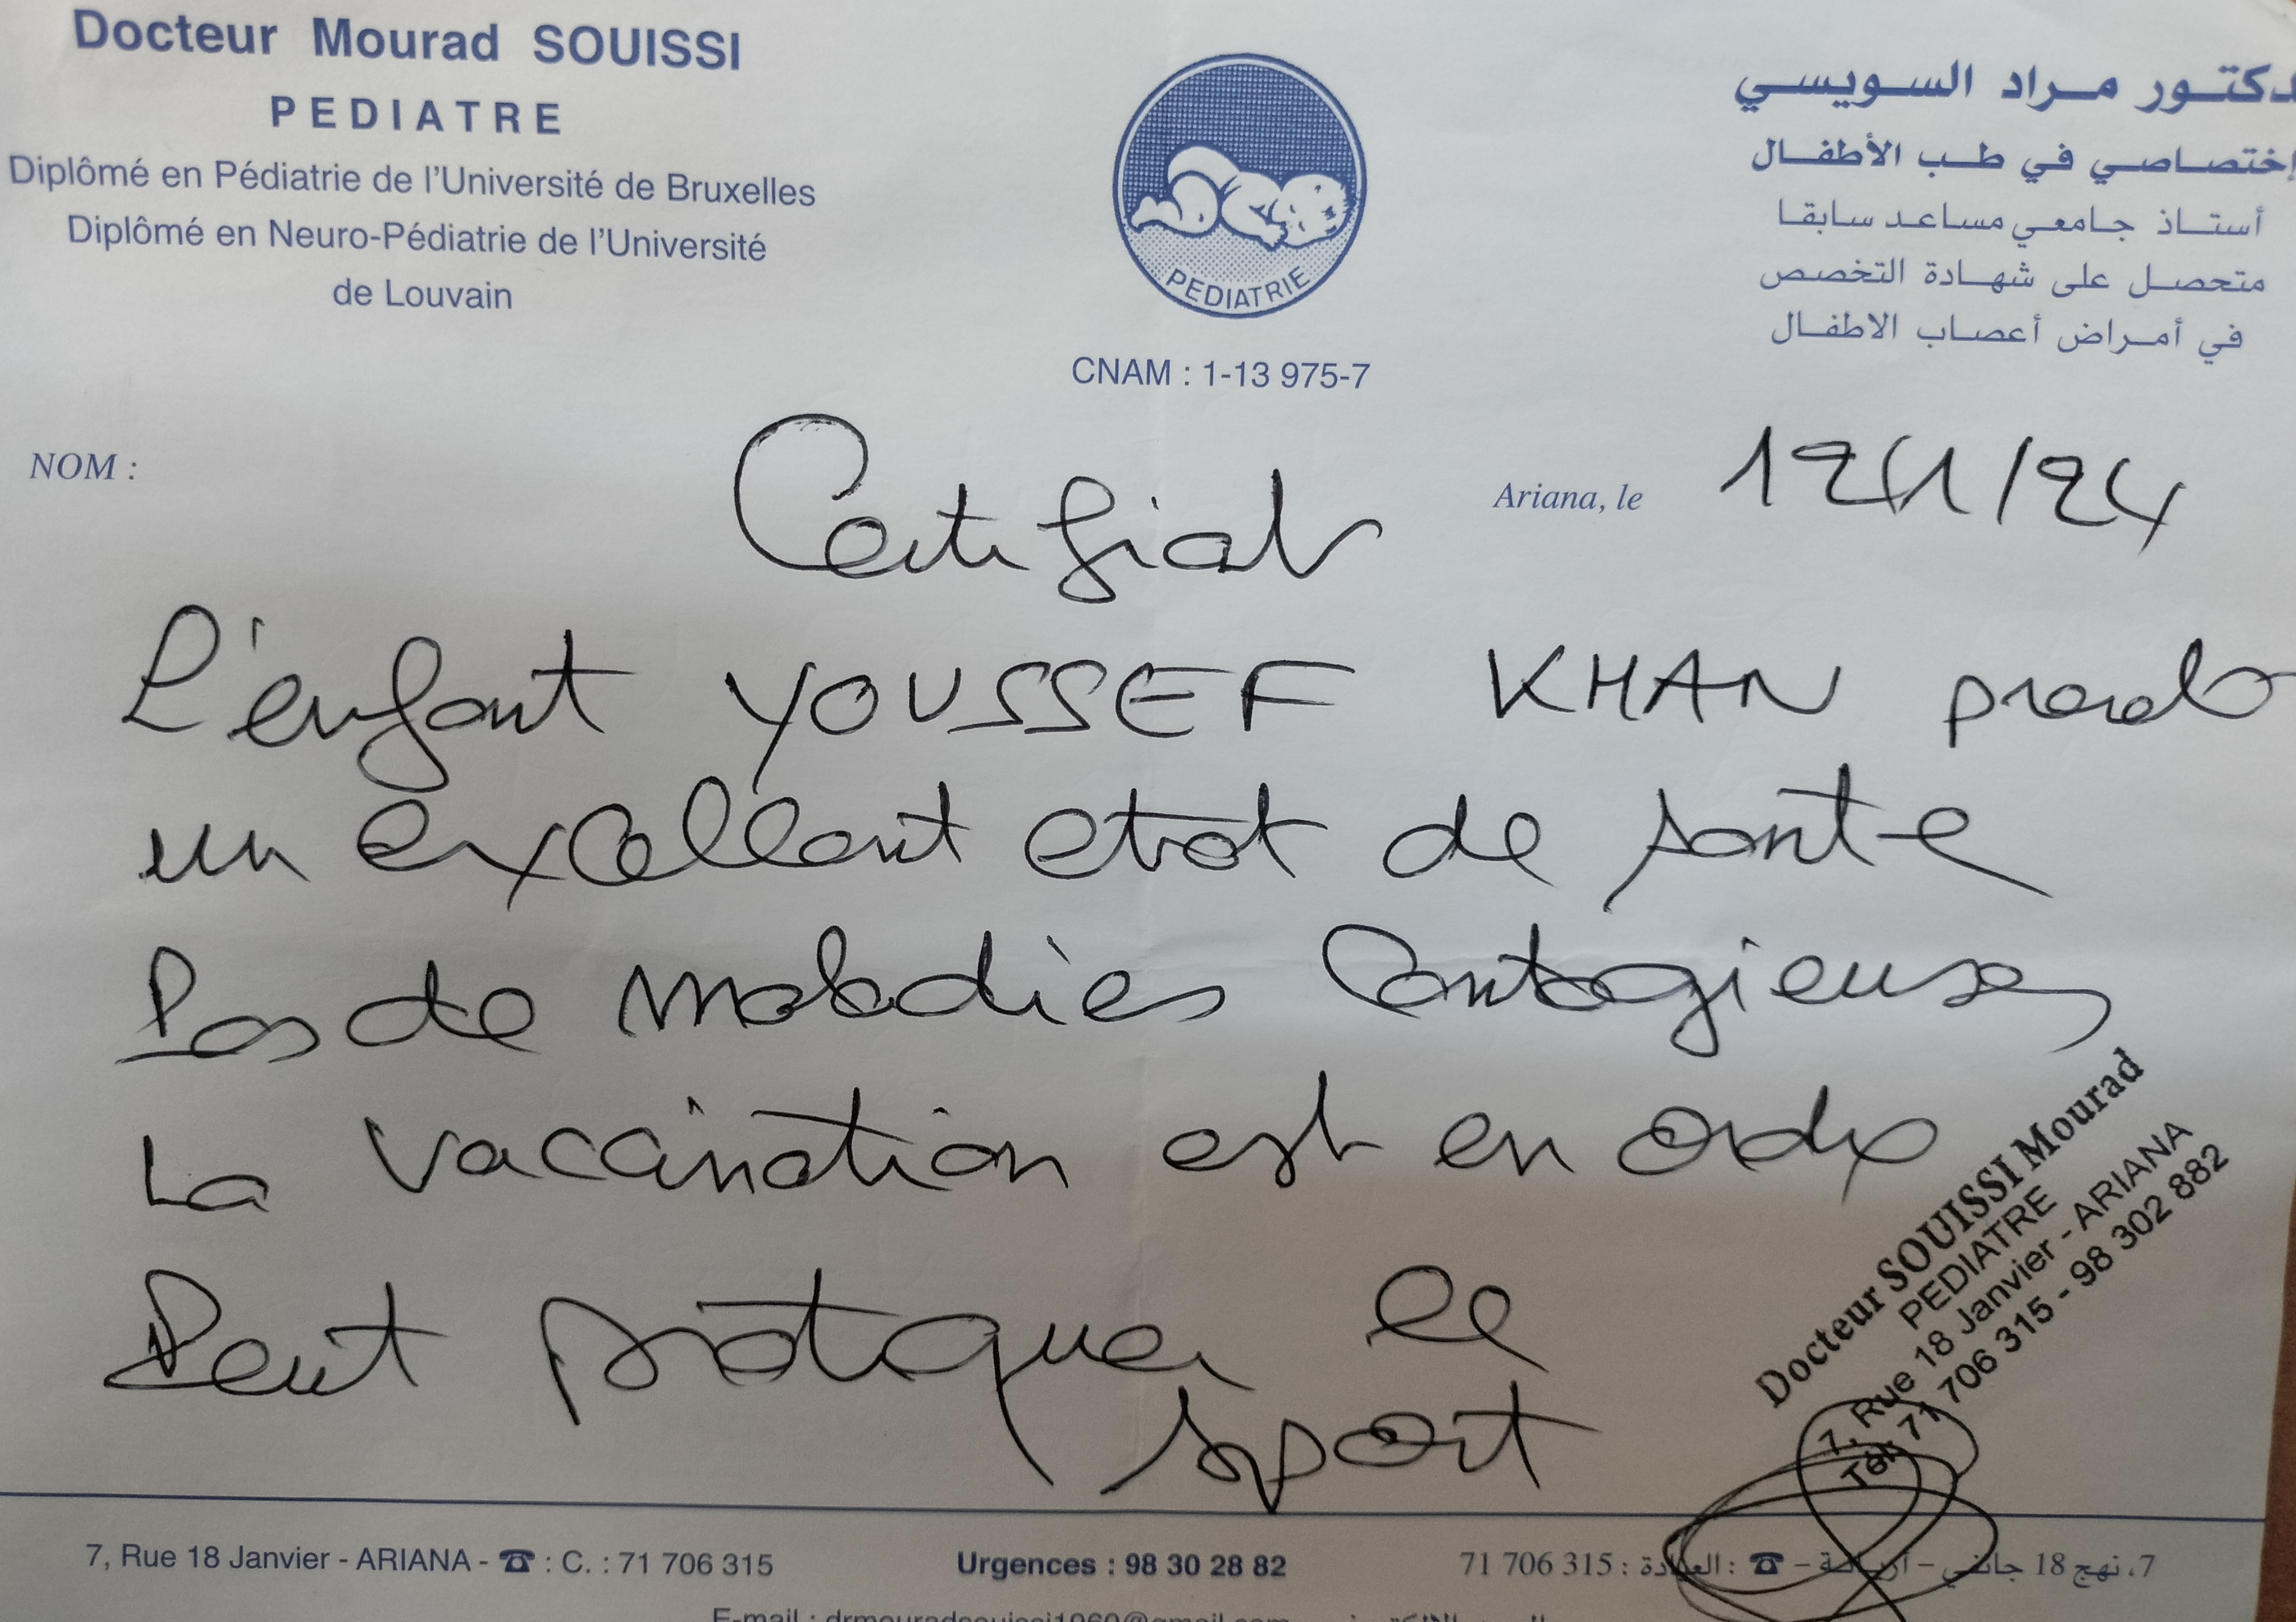 Docteur Mourad SOUISSI
PEDIATRE
Diplômé en Pédiatrie de l'Université de Bruxelles
Diplômé en Neuro-Pédiatrie de l'Université
de Louvain
PEDIATRIE
CNAM : 1-13 975-7
دكتور مراد السويسي
إختصاصي في طب الأطفال
أستاذ جامعي مساعد سابقا
متحصل على شهادة التخصص
في أمراض أعصاب الاطفال
NOM :
Ariana, le 12/1/24
Certificat
L'enfant YOUSSEF KHAN
un excellent etat de sante
Pas de maladies contagieuses
La vaccination est en ordre
Peut pratiquer le
sport
Docteur SOUISSI Mourad
PEDIATRE
7, Rue 18 Janvier - ARIANA
Tél: 71 706 315 - 98 302 882
7, Rue 18 Janvier - ARIANA - ☎ : C. : 71 706 315
Urgences : 98 30 28 82
7، نهج 18 جانفي – أريانة – ☎ : العيادة : 315 706 71
E-mail : drmouradsouissi1960@gmail.com